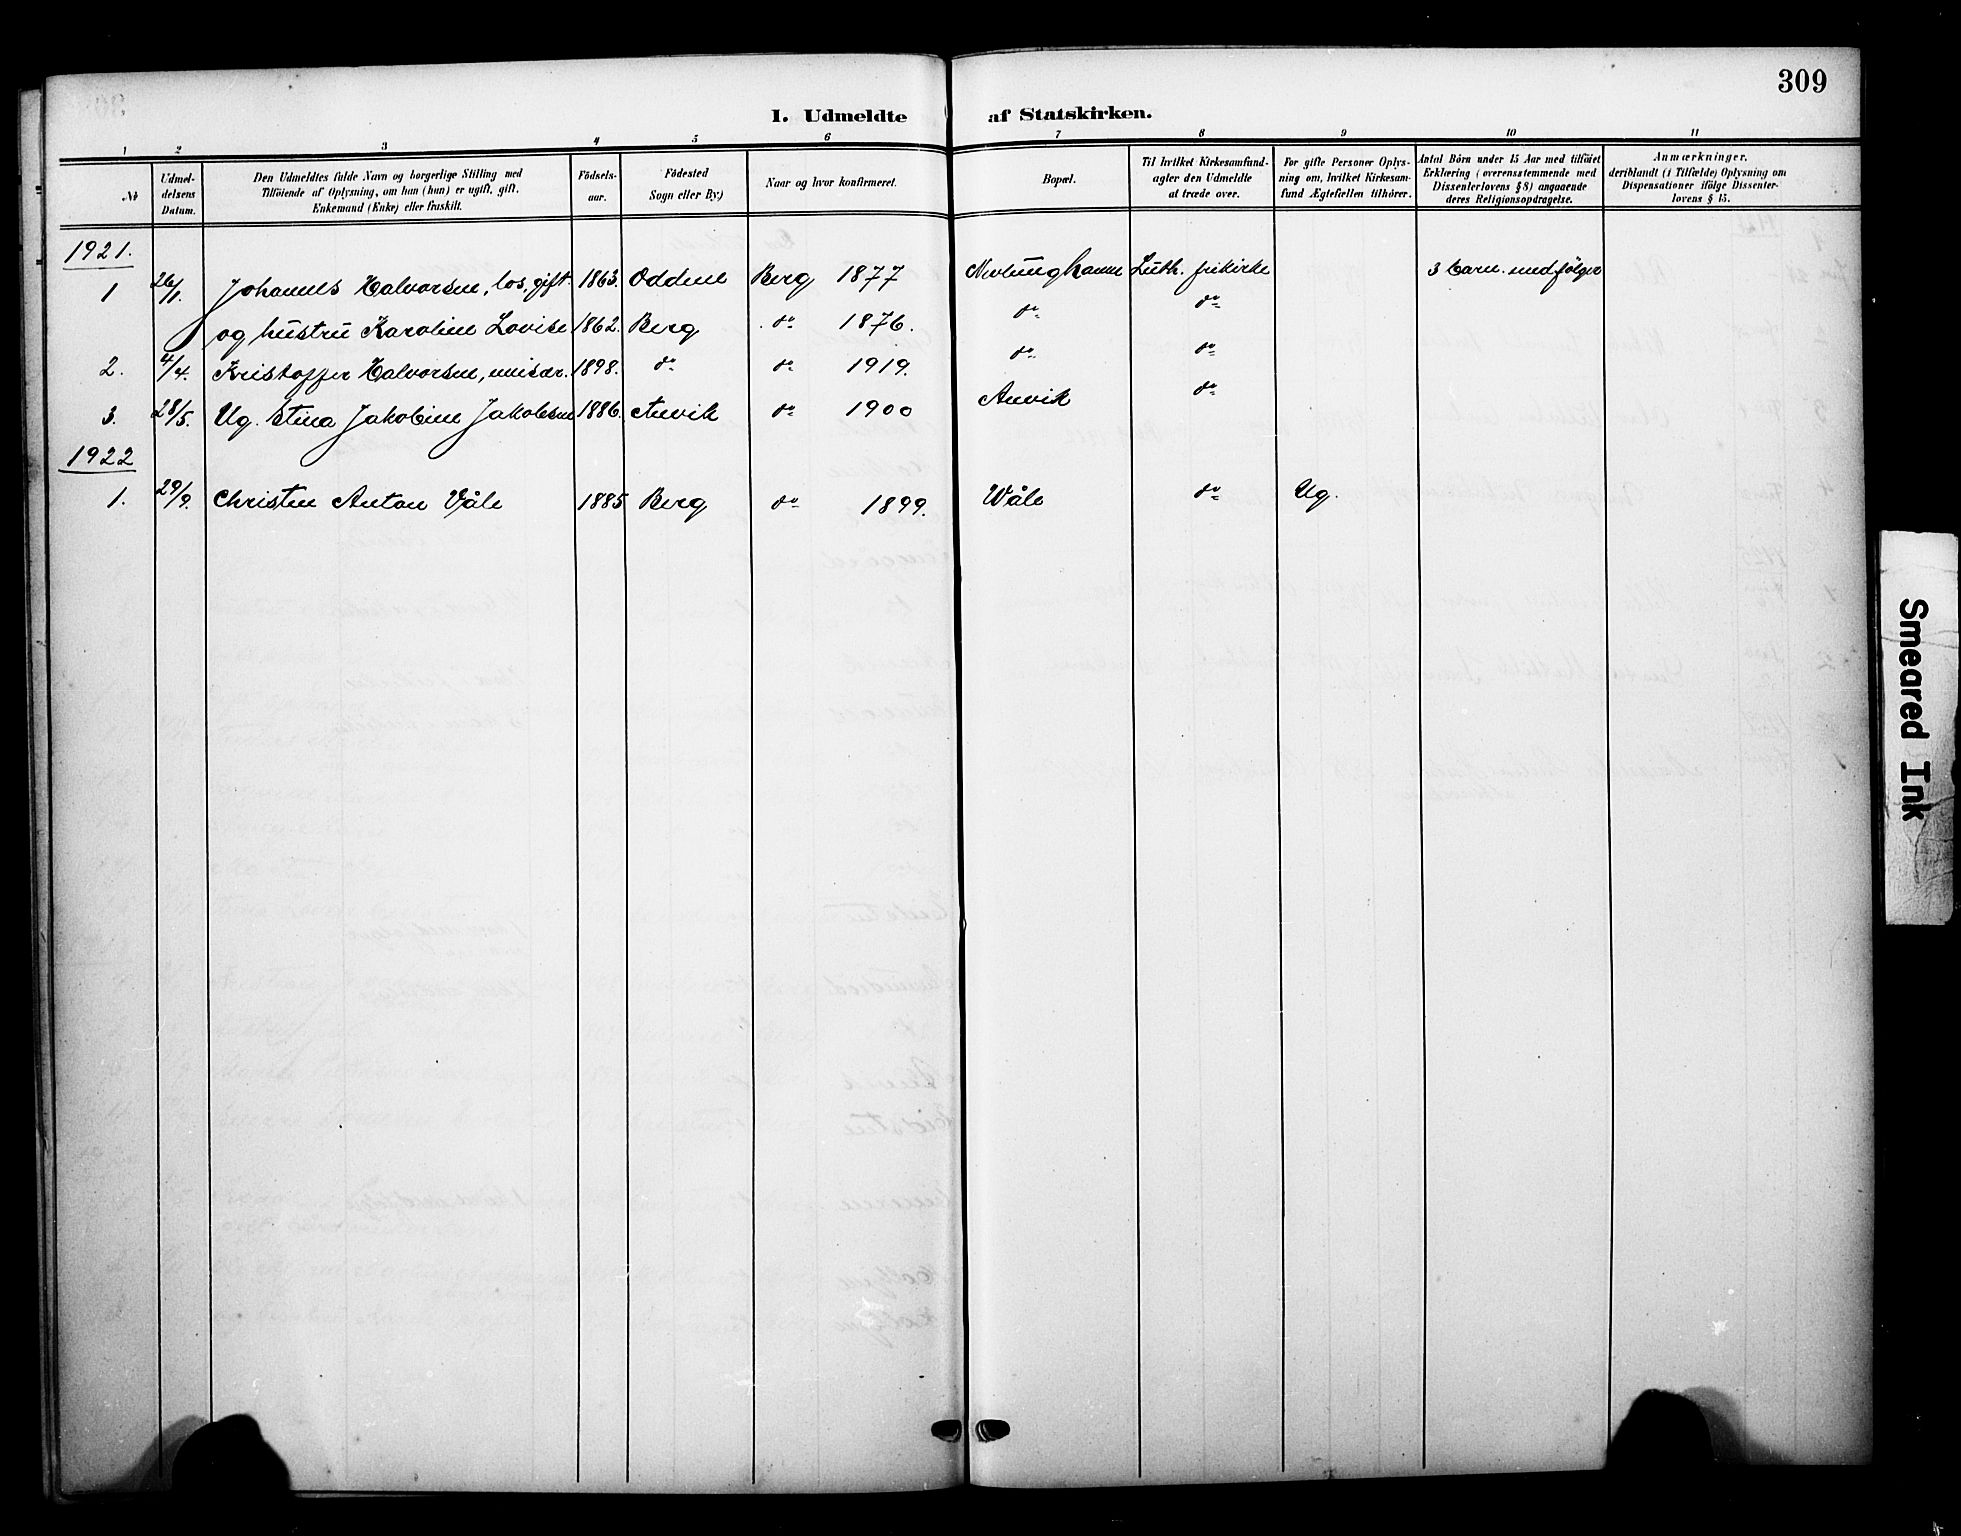 309
I. Udmeldte af Statskirken.
1 2 3 4 5 6 7 8 9 10 11
Nr
Udmel-
delsens
Datum.
Den Udmeldtes fulde Navn og borgerlige Stilling med
Tilföiende af Oplysning, om han (hun) er ugift, gift,
Enkemand (Enke) eller fraskilt.
Födsels-
aar.
Födested
Sogn eller By.)
Naar og hvor konfirmeret.
Bopæl.
Til hvilket Kirkesamfund-
agter den Udmeldte
at træde over.
For gifte Personer Oplys-
ning om, hvilket Kirkesam-
fund Ægtefællen tilhörer.
Antal Börn under 15 Aar med tilföiet
Erklæring (overensstemmende med
Dissenterlovens § 8) angaaende
deres Religionsopdragelse.
Anmærkninger,
deriblandt (i Tilfælde) Oplysning om
Dispensationer ifölge Dissenter-
lovens § 15.
1921.
1 26/1. Johannes Halvorsen, los, gift. 1863. Oddene Berg 1877 Nevlunghavn Luth. frikirke 3 barn medfølger
og hustru Karoline Lovise 1862. Berg do 1876. do do
2. 4/4. Kristoffer Halvorsen, 1898. do do 1919. do do
3. 28/5. Ug. Stina Jakobine Jakobsen 1886. Anvik do 1900 Anvik do
1922
1. 29/9. Christen Anton Våle 1885 Berg do 1899. Våle do Ug.
Smeared Ink